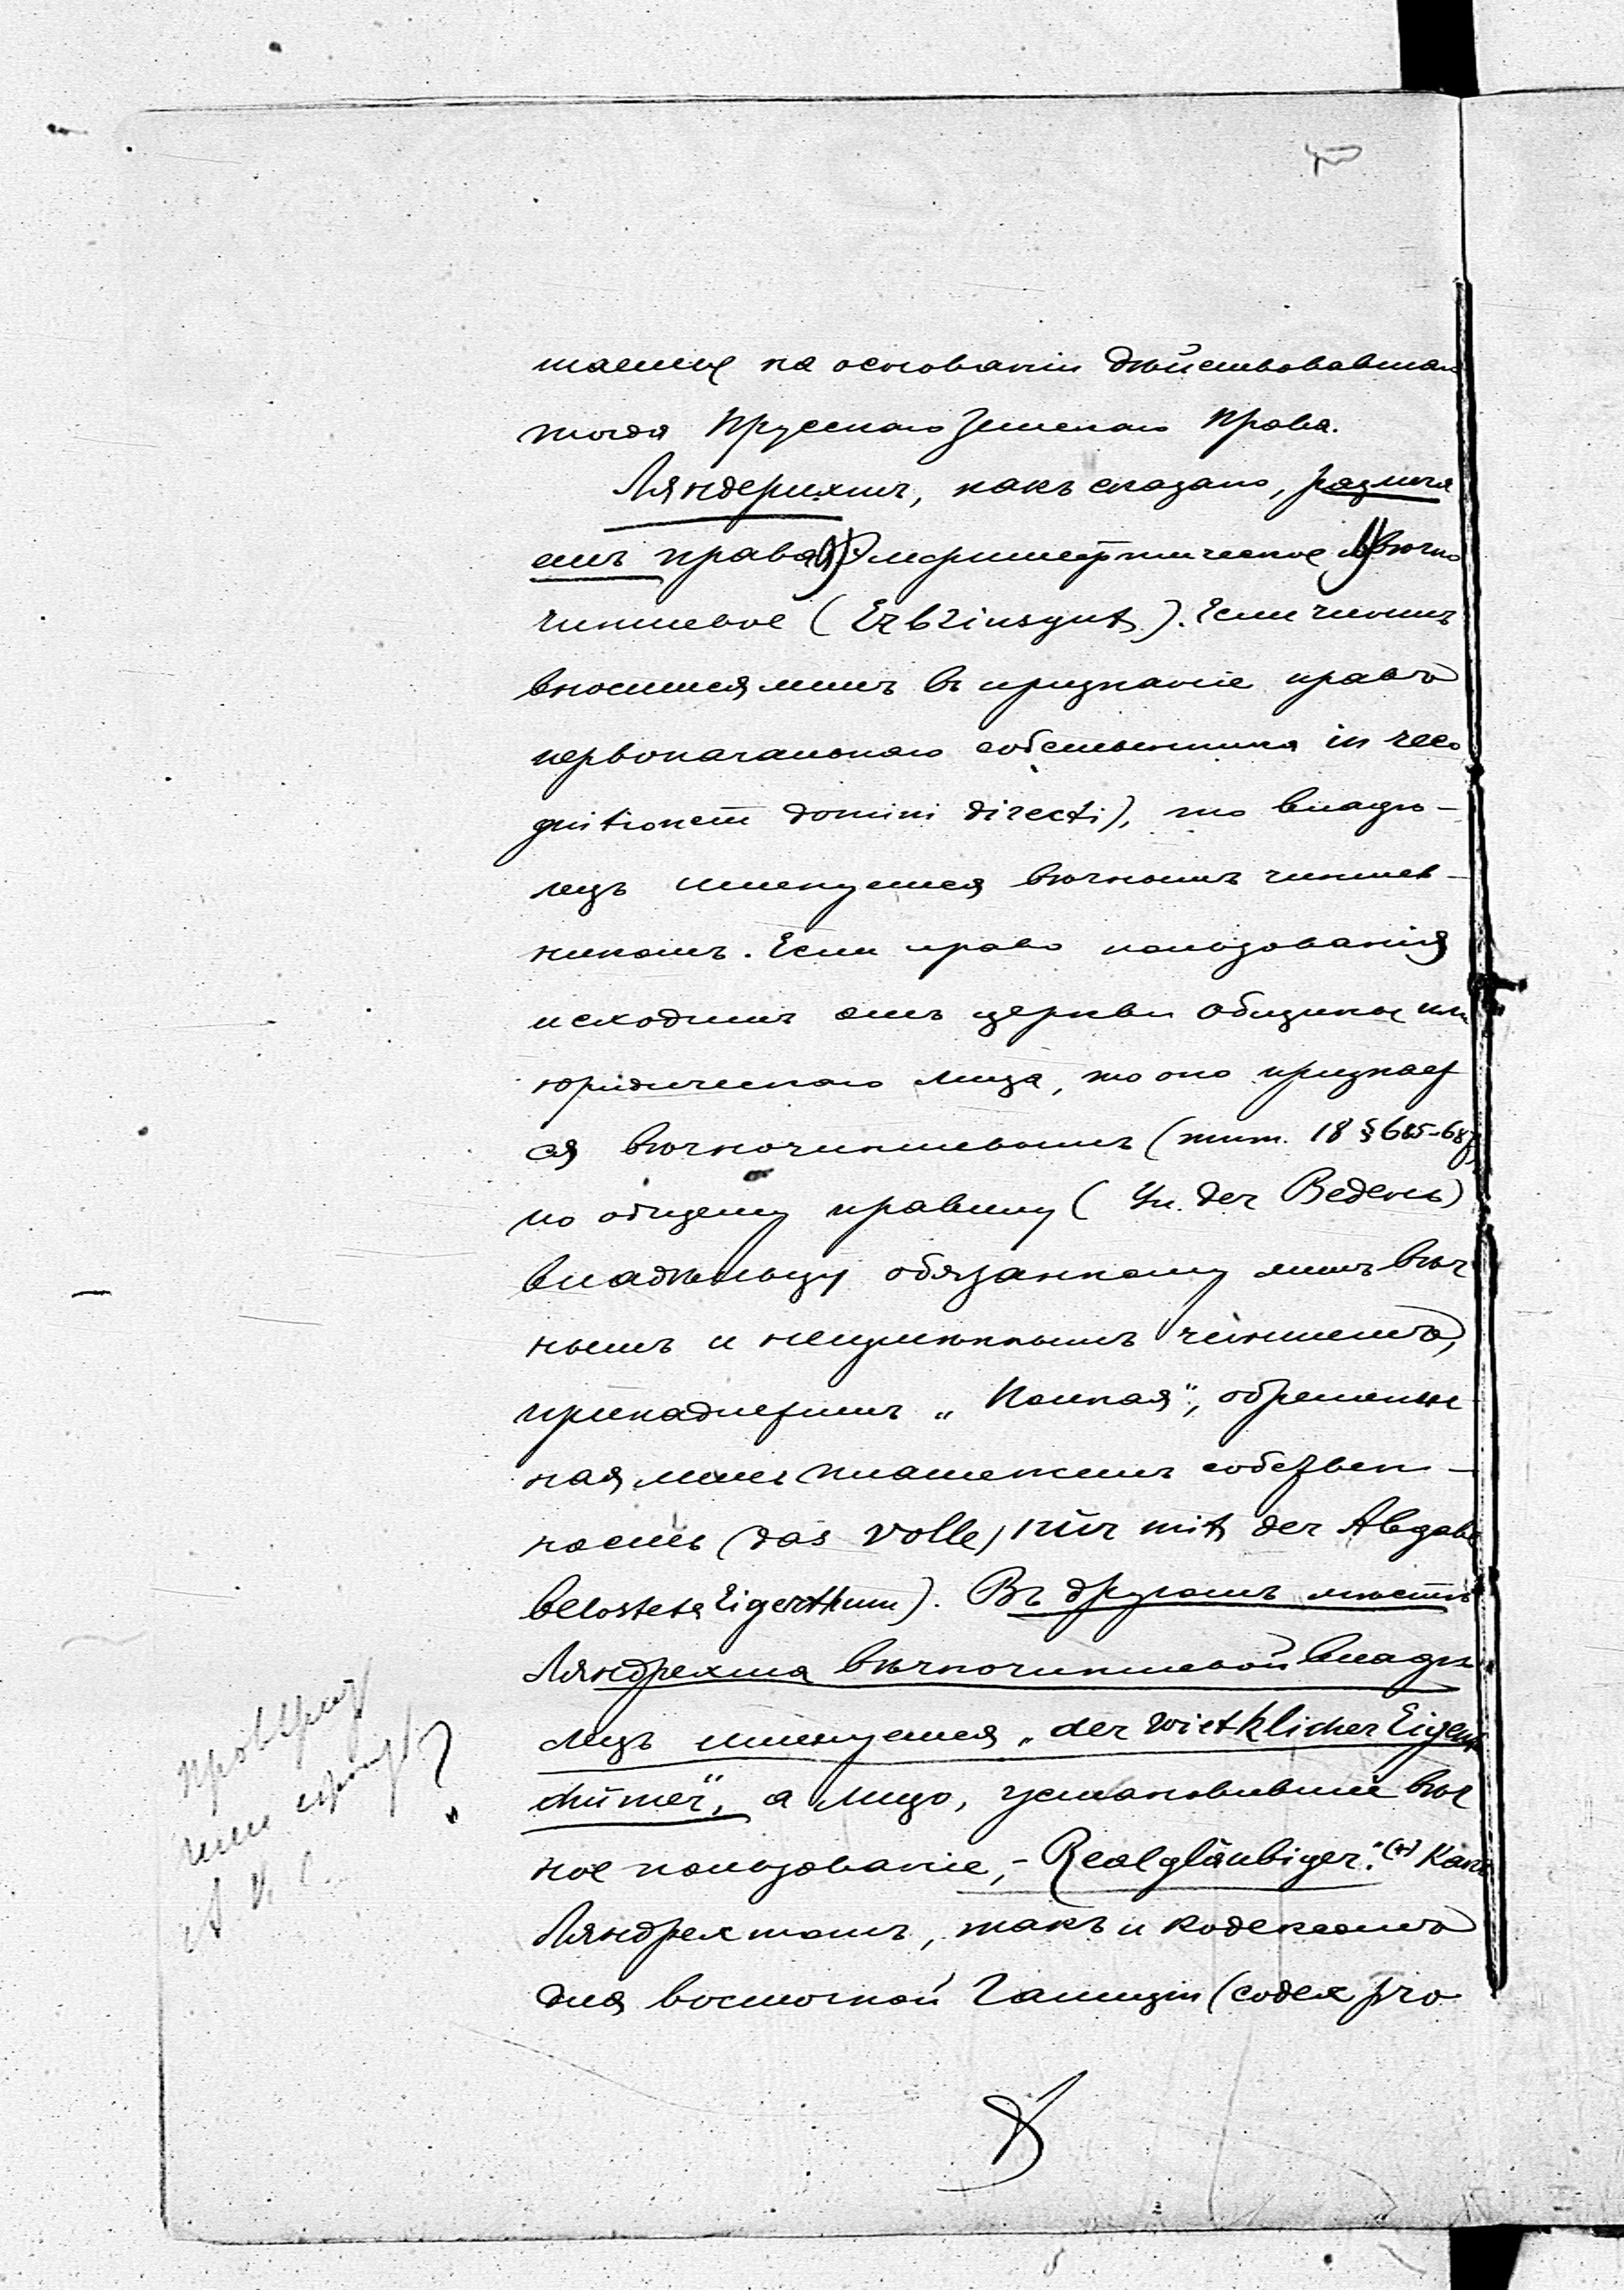 таемые на основаніи дѣйствовавшаго
тогда Прусскаго Земскаго Права.
Ляндерихтъ, какъ сказано, различа
етъ права 1) эмфитевтическое и 2) вѣчно
чиншевое (Erbzinsgut). Если чиншъ
вносится лишь въ признаніе правъ
первоначальнаго собственника in reco
gnitionem domini directi), то владѣ-
лецъ именуется вѣчнымъ чиншев-
никомъ. Если право пользованія
исходитъ отъ церкви общины или
юридическаго лица, то оно признает
ся вѣчночиншевымъ (тит. 18 § 685-687)
по общему правилу ( der Redens)
владѣльцу обязанному лишь вѣч
нымъ и неизмѣннымъ чиншемъ,
принадлежитъ „Полная", обременен
ная лишь платежемъ собствен-
ность (das volle, nur mit der Abgabe
belostete Eigerthum). Въ другомъ мѣстѣ
Ляндрехта вѣчночиншевой владѣ
лецъ именуется „der wirklicher Eigen
thümer", а лицо, установившее вѣч
ное пользованіе, - Realgläubiger." (+) Какъ
Ляндрехтомъ, такъ и кодексомъ
для восточной Галиціи (codex pro
?